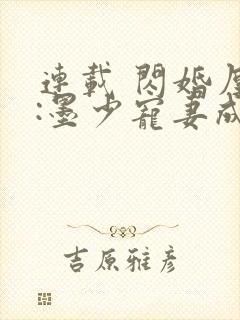 連載 閃婚
:墨少寵妻成
吉原雅彥